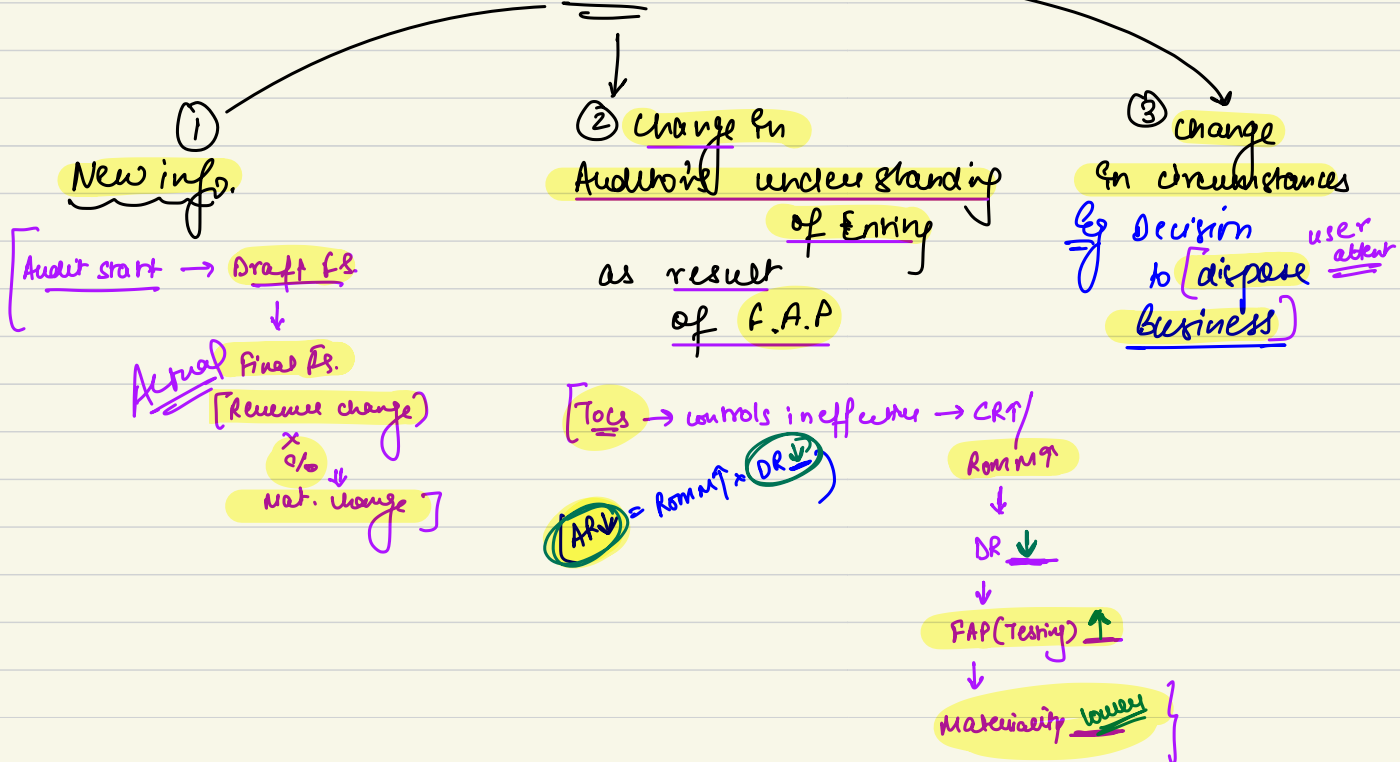 ①
New info.
[Audit start → Draft FS.
↓
Actual Final FS.
[Revenue change)
x
%
⇓
Mat. change]
↓
② Change in
Auditor's understanding
of
as result
of F.A.P
[TOCs → controls ineffective → CR↑/
ROMM↑
[AR↓ = ROMM↑ x DR↓)
↓
DR ↓
↓
FAP (Testing) ↑
↓
Materiality lower }
③ change
in circumstances
Eg Decision
to [dispose
Business]
user